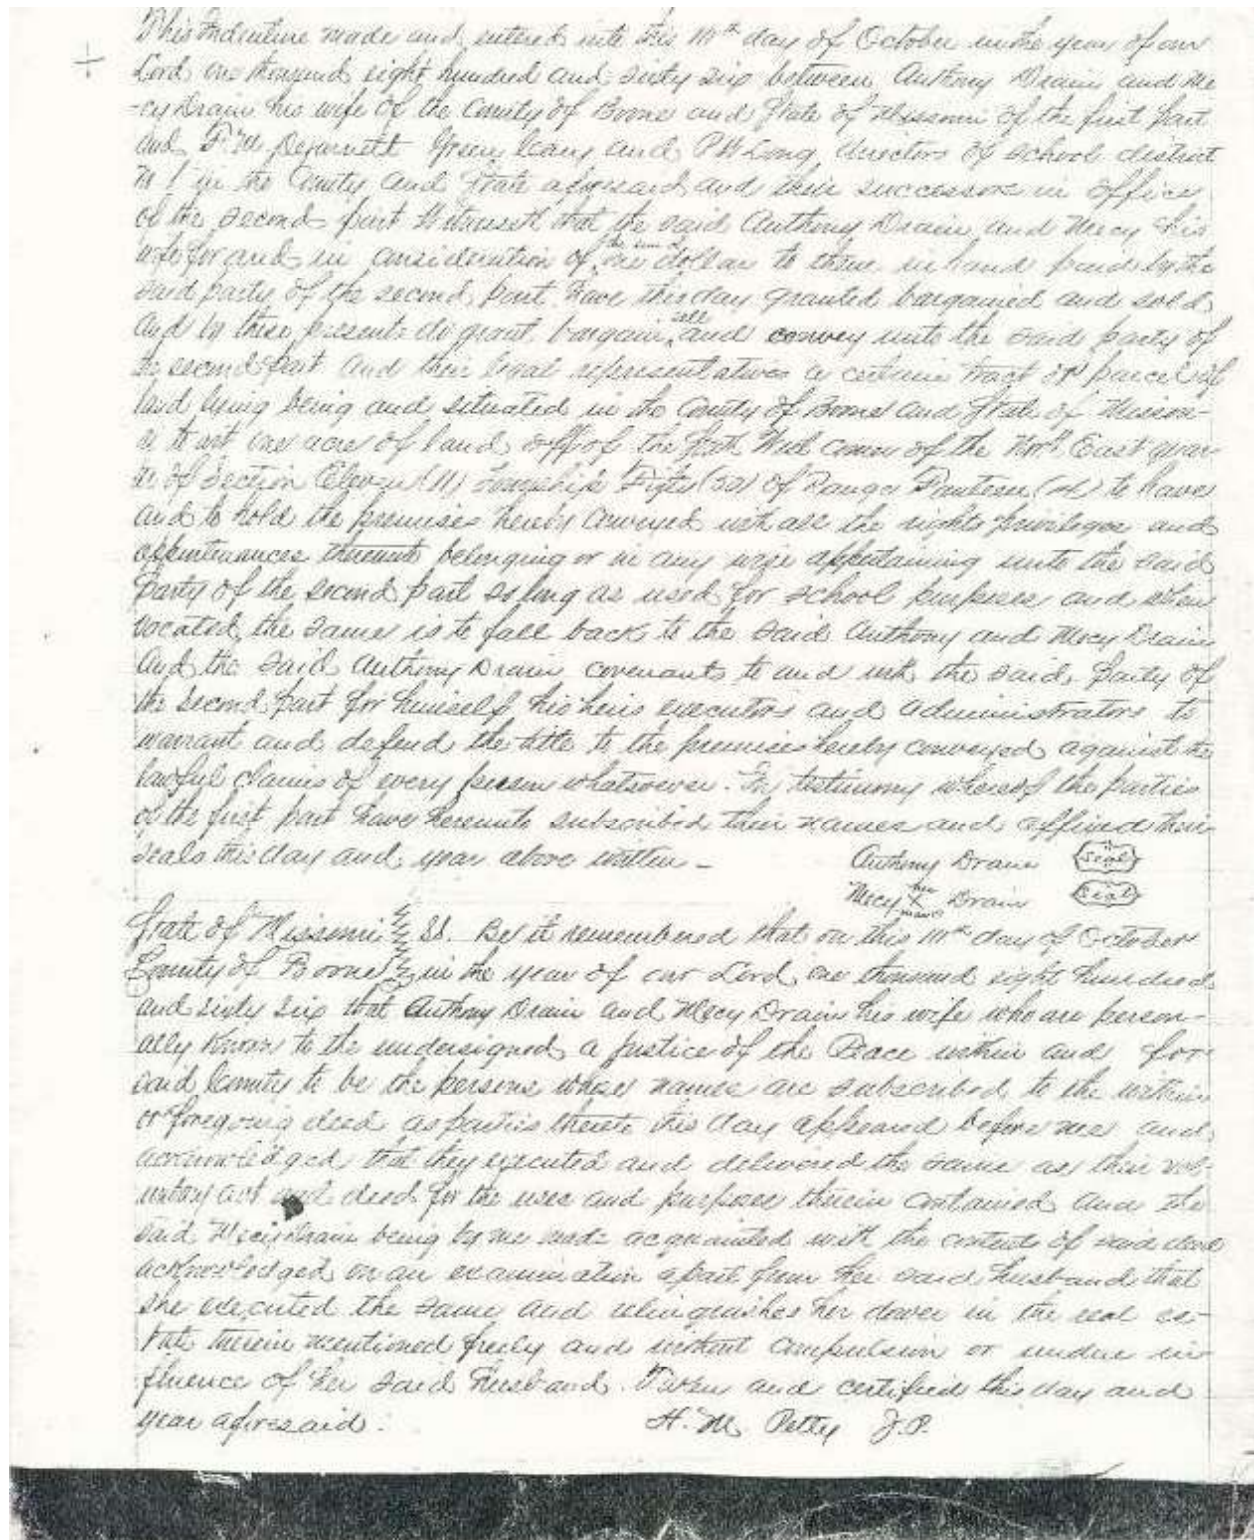 This Indenture made and entered into this 10th day of October in the year of our
Lord one thousand eight hundred and sixty six between Anthony Drain and Me
-cy Drain his wife of the County of Boone and State of Missouri of the first part
and F. M. Dejarnett Green Leary and P H Long, directors of school district
No 1 in the County and State aforesaid and their successors in office
of the second part Witnesseth that the said Anthony Drain and Mecy his
wife for and in consideration of the sum of one dollar to them in hand paid by the
said party of the second part have this day granted bargained and sold
and by these presents do grant bargain, sell and convey unto the said party of
the second part and their legal representatives a certain tract or parcel of
land lying being and situated in the County of Boone and State of Missou-
ri to wit one acre of land off of the South West corner of the North East quar-
ter of Section Eleven (11) Township Fifty (50) of Range Fourteen (14) to have
and to hold the premises hereby conveyed with all the rights privileges and
appurtenances thereunto belonging or in any wise appertaining unto the said
Party of the second part so long as used for school purposes and when
vacated the same is to fall back to the said Anthony and Mecy Drain
And the said Anthony Drain covenants to and with the said party of
the second part for himself his heirs executors and administrators to
warrant and defend the title to the premises hereby conveyed against the
lawful claims of every person whatsoever. In testimony whereof the parties
of the first part have hereunto subscribed their names and affixed their
seals this day and year above written –
Anthony Drain Seal
Mecy her X mark Drain Seal
State of Missouri } SS. Be it remembered that on this 10th day of October
County of Boone } in the year of our Lord one thousand eight hundred
and sixty six that Anthony Drain and Mecy Drain his wife who are person-
ally known to the undersigned a Justice of the Peace within and for
said County to be the persons whose names are subscribed to the within
or foregoing deed as parties thereto this day appeared before me and
acknowledged that they executed and delivered the same as their vol-
untary act and deed for the uses and purposes therein contained and the
said Mecy Drain being by me made acquainted with the contents of said deed
acknowledged on an examination apart from her said husband that
she executed the same and relinquishes her dower in the real es-
tate therein mentioned freely and without compulsion or undue in
fluence of her said Husband. Taken and certified this day and
year aforesaid. H. M. Petty J.P.